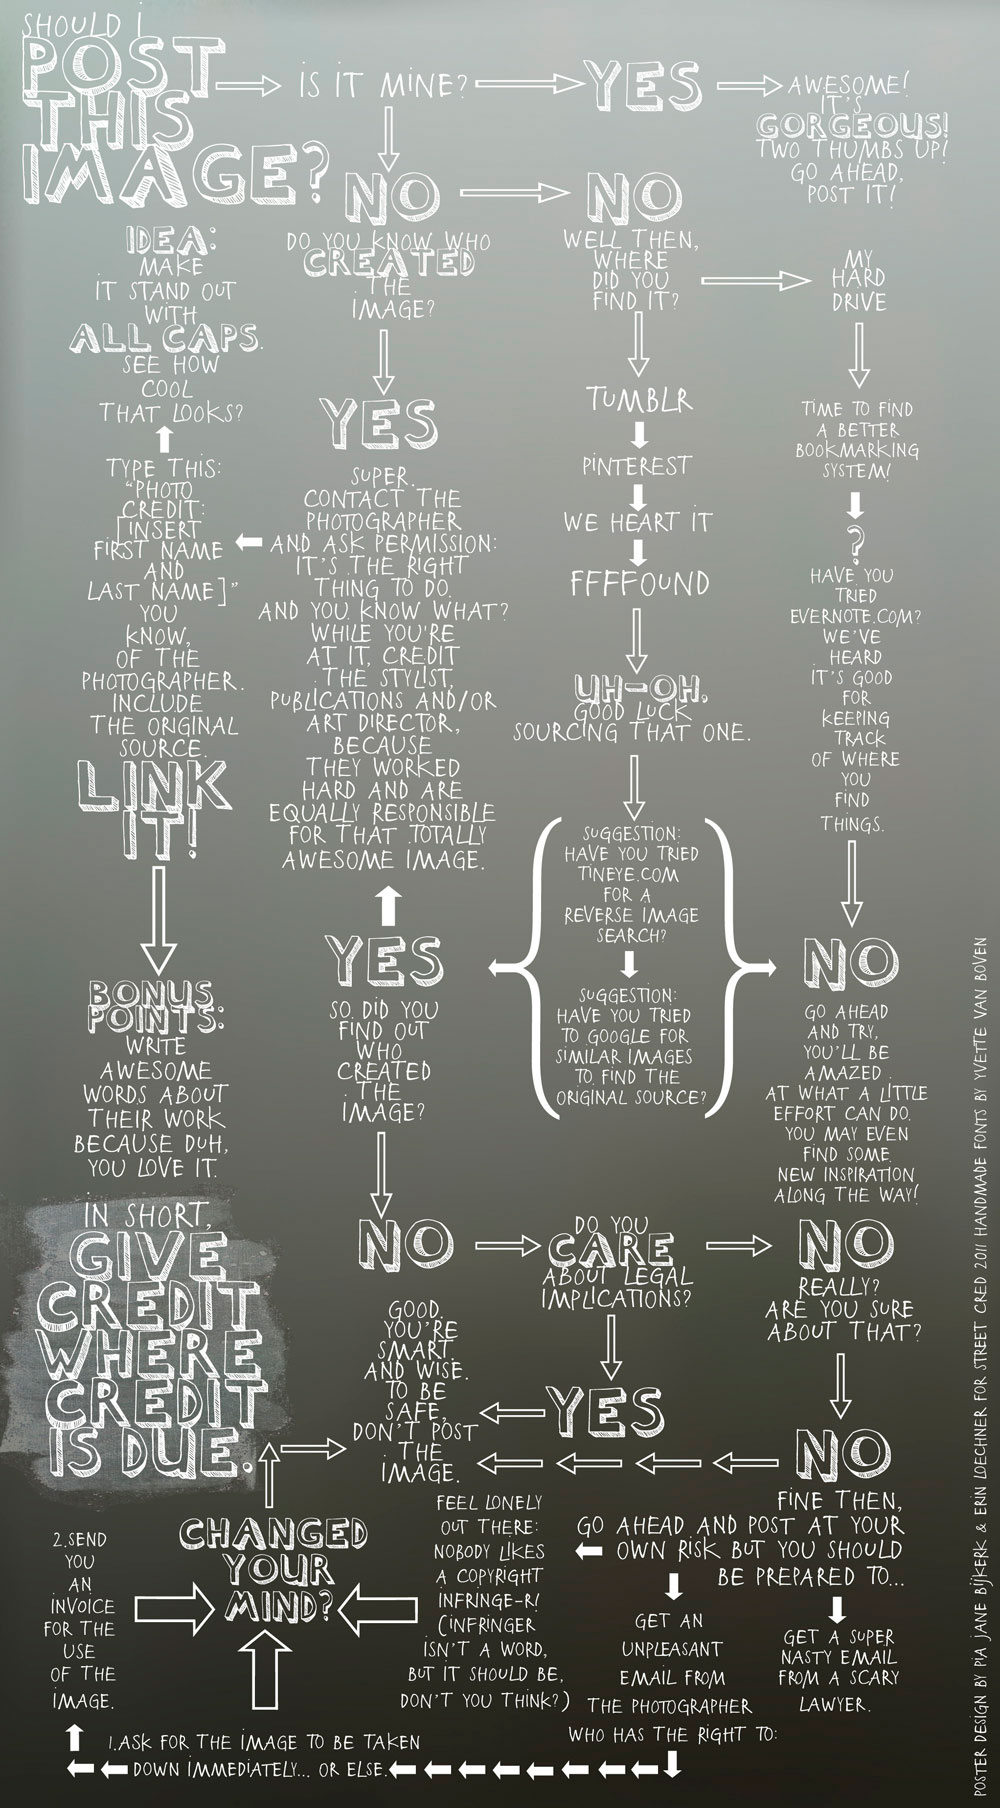 SHOULD I
POST
THIS
IMAGE?
IS IT MINE?
YES
AWESOME!
IT'S
GORGEOUS!
TWO THUMBS UP!
GO AHEAD,
POST IT!
NO
DO YOU KNOW WHO
CREATED
THE
IMAGE?
NO
WELL THEN,
WHERE
DID YOU
FIND IT?
MY
HARD
DRIVE
IDEA:
MAKE
IT STAND OUT
WITH
ALL CAPS.
SEE HOW
COOL
THAT LOOKS?
TYPE THIS:
"PHOTO
CREDIT:
[INSERT
FIRST NAME
AND
LAST NAME]"
YOU
KNOW,
OF THE
PHOTOGRAPHER.
INCLUDE
THE ORIGINAL
SOURCE.
LINK
IT!
BONUS
POINTS:
WRITE
AWESOME
WORDS ABOUT
THEIR WORK
BECAUSE DUH,
YOU LOVE IT.
IN SHORT,
GIVE
CREDIT
WHERE
CREDIT
IS DUE.
YES
SUPER.
CONTACT THE
PHOTOGRAPHER
AND ASK PERMISSION:
IT'S THE RIGHT
THING TO DO.
AND YOU KNOW WHAT?
WHILE YOU'RE
AT IT, CREDIT
THE STYLIST,
PUBLICATIONS AND/OR
ART DIRECTOR,
BECAUSE
THEY WORKED
HARD AND ARE
EQUALLY RESPONSIBLE
FOR THAT TOTALLY
AWESOME IMAGE.
YES
SO, DID YOU
FIND OUT
WHO
CREATED
THE
IMAGE?
TUMBLR
PINTEREST
WE HEART IT
FFFFOUND
UH-OH,
GOOD LUCK
SOURCING THAT ONE.
SUGGESTION:
HAVE YOU TRIED
TINEYE.COM
FOR A
REVERSE IMAGE
SEARCH?
SUGGESTION:
HAVE YOU TRIED
TO GOOGLE FOR
SIMILAR IMAGES
TO FIND THE
ORIGINAL SOURCE?
TIME TO FIND
A BETTER
BOOKMARKING
SYSTEM!
?
HAVE YOU
TRIED
EVERNOTE.COM?
WE'VE
HEARD
IT'S GOOD
FOR
KEEPING
TRACK
OF WHERE
YOU
FIND
THINGS.
NO
GO AHEAD
AND TRY,
YOU'LL BE
AMAZED
AT WHAT A LITTLE
EFFORT CAN DO.
YOU MAY EVEN
FIND SOME
NEW INSPIRATION
ALONG THE WAY!
NO
DO YOU
CARE
ABOUT LEGAL
IMPLICATIONS?
NO
REALLY?
ARE YOU SURE
ABOUT THAT?
GOOD.
YOU'RE
SMART.
AND WISE.
TO BE
SAFE,
DON'T POST
THE
IMAGE.
YES
NO
FINE THEN,
GO AHEAD AND POST AT YOUR
OWN RISK BUT YOU SHOULD
BE PREPARED TO...
GET A SUPER
NASTY EMAIL
FROM A SCARY
LAWYER.
GET AN
UNPLEASANT
EMAIL FROM
THE PHOTOGRAPHER
WHO HAS THE RIGHT TO:
FEEL LONELY
OUT THERE:
NOBODY LIKES
A COPYRIGHT
INFRINGE-R!
(INFRINGER
ISN'T A WORD,
BUT IT SHOULD BE,
DON'T YOU THINK?)
CHANGED
YOUR
MIND?
1.ASK FOR THE IMAGE TO BE TAKEN
DOWN IMMEDIATELY... OR ELSE.
2.SEND
YOU
AN
INVOICE
FOR THE
USE
OF THE
IMAGE.
POSTER DESIGN BY PIA JANE BIJKERK & ERIN LOECHNER FOR STREET CRED 2011 HANDMADE FONTS BY YVETTE VAN BOVEN